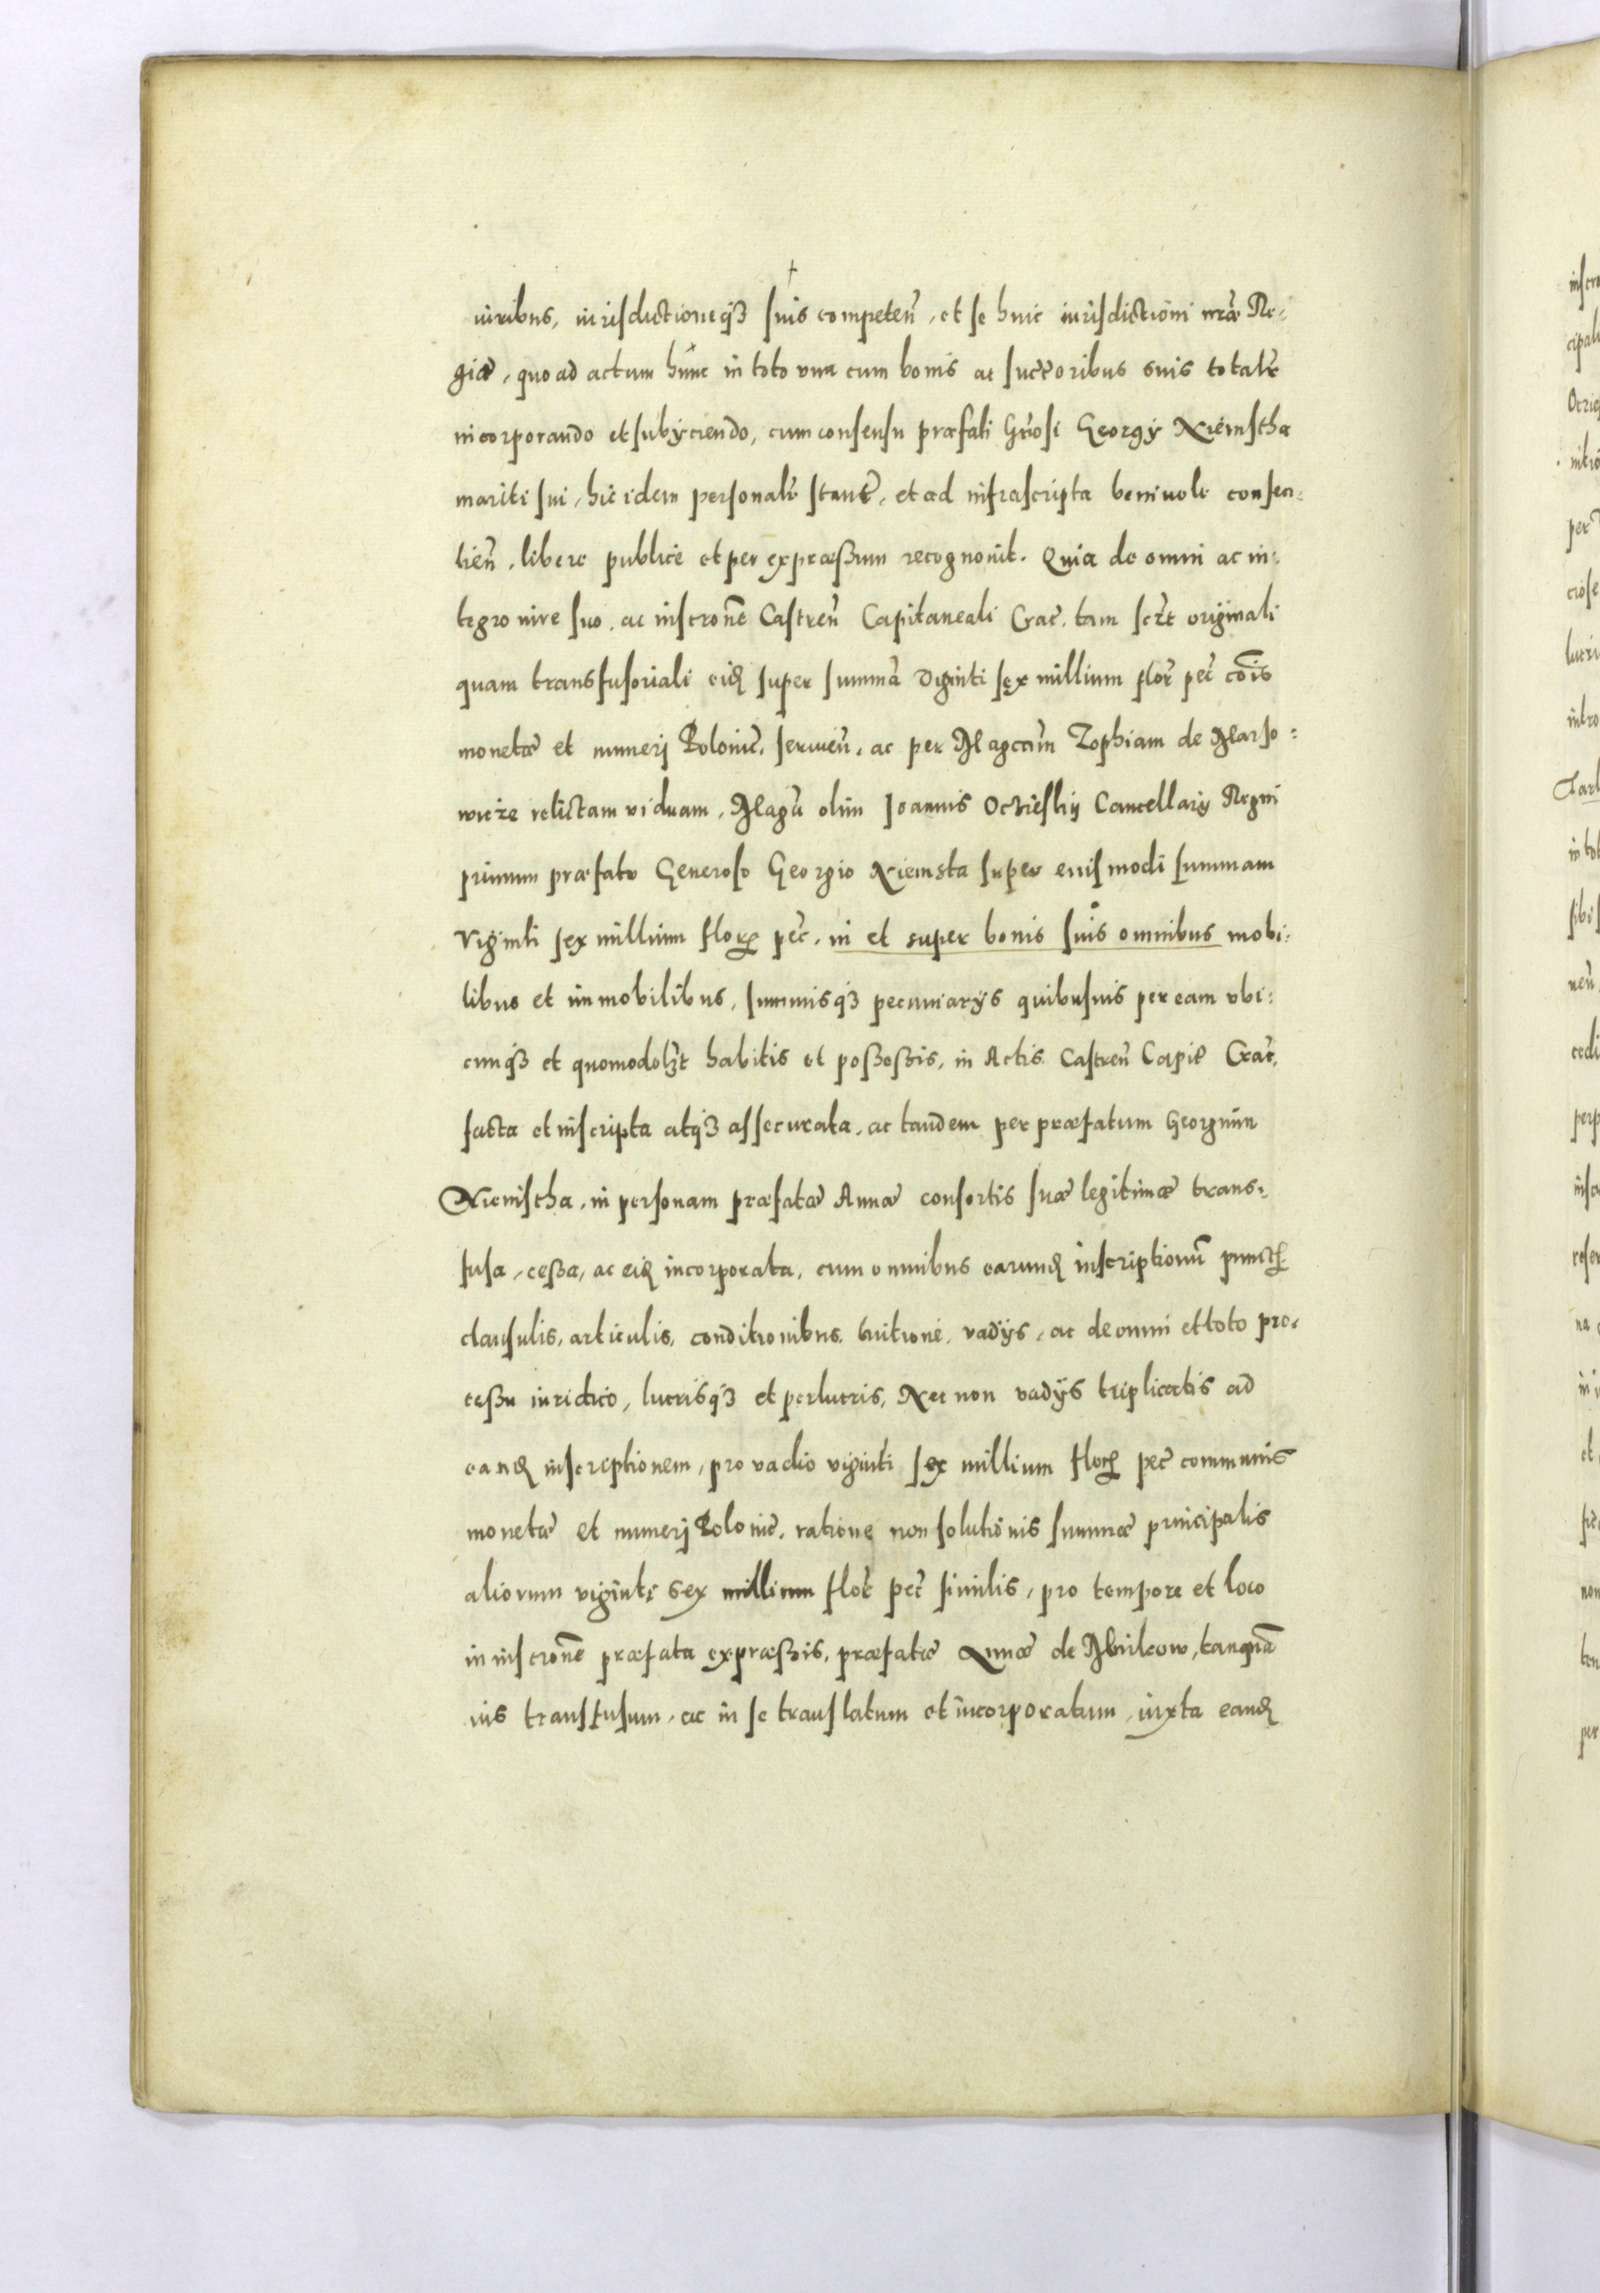 iuribus, iurisdictioneq₃ suis competeñ, et se huic iurisdictioni nr̃æ Re-
giæ, quo ad actum hunc in toto una cum bonis ac succ̃oribus suis totalr̃
incorporando et subÿciendo, cum consensu præfati Gñosi Georgÿ Niemstha
mariti sui, hic idem personalr̃ stañt, et ad infrascripta benivole consen-
tieñ, libere publice et per expræssum recognovit. Quia de omni ac in-
tegro iure suo, ac inscrõne Castreñ Capitaneali Crac̃. tam sc̃zt originali
quam transfusoriali eid̃ super summã viginti sex millium flor̃ pec̃ cõis
monetæ et numeri Poloniæ, servieñ, ac per Mag̃cam Zophiam de Marso-
wicze relictam viduam, Magc̃i olim Joannis Oczieskÿ Cancellarÿ Regni
primum præfato Generoso Georgio Niemsta super eiusmodi summam
Viginti sex millium flor̃ pec̃. in et super bonis suis omnibus mobi-
libus et immobilibus, summisq₃ pecuniarÿs quibusuis per eam ubi-
cunq₃ et quomodolʒt habitis et possessis, in Actis Castreñ Capit̃ Crac̃.
facta et inscripta atq₃ assecurata, ac tandem per præfatum Georgium
Niemstha, in personam præfatæ Annæ consortis suæ legitimæ trans-
fusa, cessa, ac eid̃ incorporata, cum omnibus earund̃ inscriptionũ punct̃
clausulis, articulis, conditionibus, tuitione, vadÿs, ac de omni et toto pro-
cessu iuridico, lucrisq₃ et perlucris, Nec non vadÿs triplicatis ad
eand̃ inscriptionem, pro vadio viginti sex millium flor̃ pec̃ communis
monetæ et numeri Poloniæ, ratione non solutionis summæ principalis
aliorum viginti sex millium flor̃ pec̃ similis, pro tempore et loco
in inscrõne præfata expræssis, præfatæ Annæ de, tanquã
ius transfusum, ac in se translatum et incorporatum, iuxta eand̃